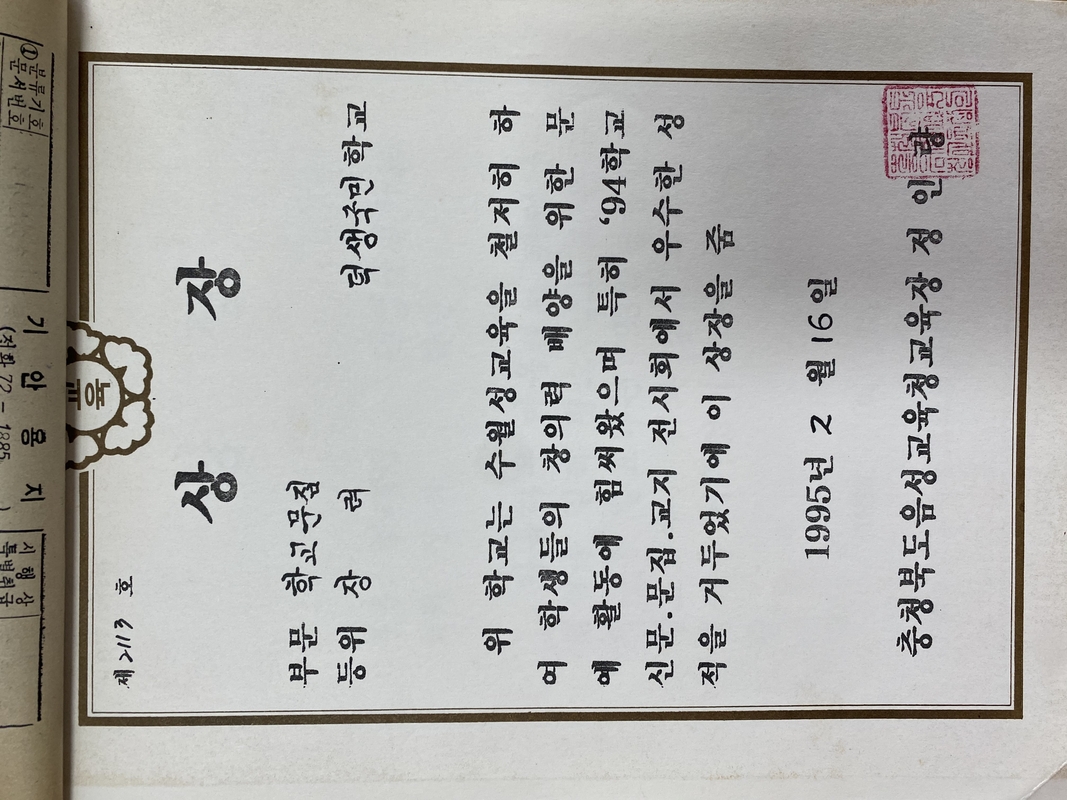 제 2113 호
상 장
부문 학교문집
등위 장 려
덕생국민학교
위 학교는 수월성교육을 철저히 하
여 학생들의 창의력 배양을 위한 문
예 활동에 힘써왔으며 특히 '94학교
신문.문집.교지 전시회에서 우수한 성
적을 거두었기에 이 상장을 줌
1995년 2 월 16일
충청북도음성교육청교육장 정 인
분류기호
①문서번호
기 안 용 지
(전화 72-1885 )
시 행 상
특별취급